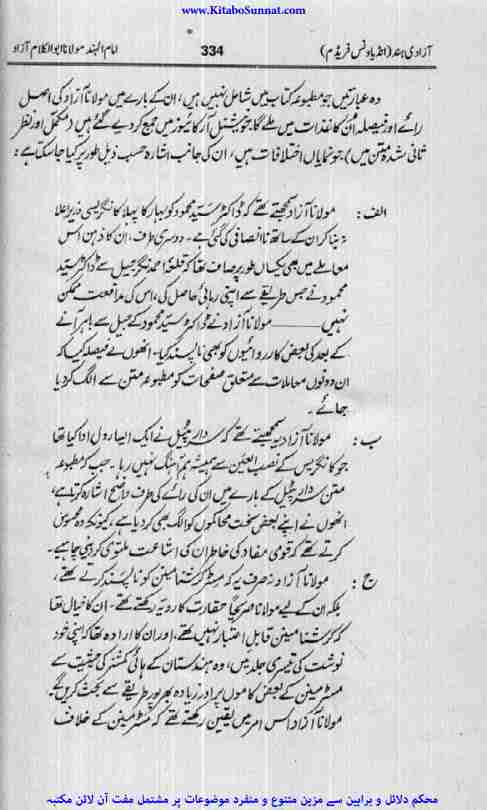 www.KitaboSunnat.com
آزادی ہند (انڈیا ونس فریڈم) 334 امام الہند مولانا ابوالکلام آزاد
وہ عبارتیں جو مطبوعہ کتاب میں شامل نہیں ہیں، ان کے بارے میں مولانا آزاد کی اصل
رائے اور فیصلہ اُن کاغذات میں ملے گا جو نیشنل آرکائیوز میں جمع کر دیے گئے ہیں (مکمل اور نظر
ثانی شدہ متن میں) جو نمایاں اختلافات ہیں، ان کی جانب اشارہ حسب ذیل طور پر کیا جا سکتا ہے:
الف: مولانا آزاد سمجھتے تھے کہ ڈاکٹر سید محمود کو بہار کا پہلا کانگریسی وزیر اعلا
نہ بنا کر ان کے ساتھ ناانصافی کی گئی ہے۔ دوسری طرف، ان کا ذہن اس
معاملے میں بھی یکساں طور پر صاف تھا کہ قلعۂ احمد نگر جیل سے ڈاکٹر سید
محمود نے جس طریقے سے اپنی رہائی حاصل کی، اس کی مدافعت ممکن
نہیں ـــــ مولانا آزاد نے ڈاکٹر سید محمود کے جیل سے باہر آنے
کے بعد کی بعض کارروائیوں کو بھی ناپسند کیا۔ انھوں نے فیصلہ کیا کہ
ان دونوں معاملات سے متعلق صفحات کو مطبوعہ متن سے الگ کر دیا
جائے۔
ب: مولانا آزاد یہ سمجھتے تھے کہ سردار پٹیل نے ایک ایسا رول ادا کیا تھا
جو کانگریس کے نصب العین سے ہمیشہ ہم آہنگ نہیں رہا۔ جب کہ مطبوعہ
متن سردار پٹیل کے بارے میں ان کی رائے کی طرف واضح اشارہ کرتا ہے،
انھوں نے اپنے بعض سخت محاکموں کو الگ بھی کر دیا ہے، کیونکہ وہ محسوس
کرتے تھے کہ قومی مفاد کی خاطر ان کی اشاعت ملتوی کر دینی چاہیے۔
ج: مولانا آزاد نہ صرف یہ کہ مسٹر کرشنا مینن کو ناپسند کرتے تھے،
بلکہ ان کے لیے مولانا صریحاً حقارت کا رویہ رکھتے تھے۔ ان کا خیال تھا
کہ کرشنا مینن قابل اعتبار نہیں تھے، اور ان کا ارادہ تھا کہ اپنی خود
نوشت کی تیسری جلد میں، وہ ہندستان کے ہائی کمشنر کی حیثیت سے
مسٹر مینن کے بعض کاموں پر اور زیادہ بھرپور طریقے سے بحث کریں گے۔
مولانا آزاد اس امر میں یقین رکھتے تھے کہ مسٹر مینن کے خلاف
محکم دلائل و براہین سے مزین متنوع و منفرد موضوعات پر مشتمل مفت آن لائن مکتبہ